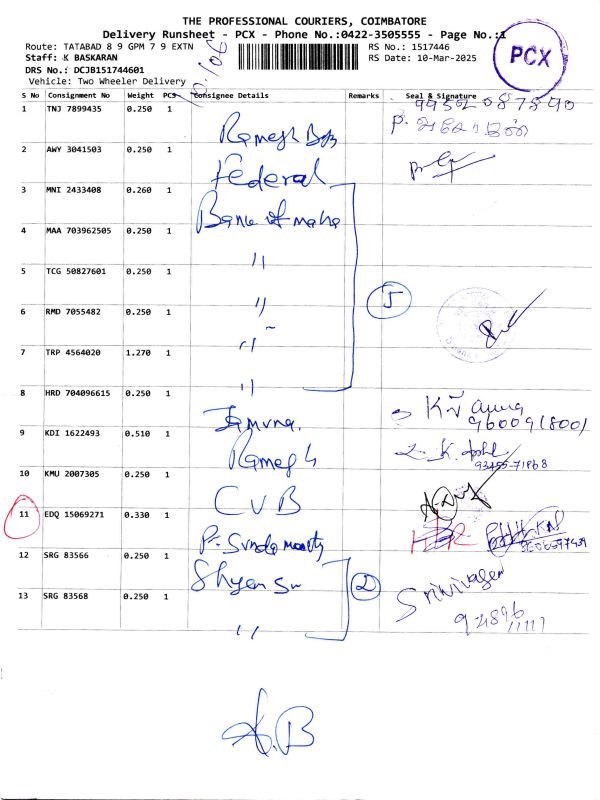 THE PROFESSIONAL COURIERS, COIMBATORE
Delivery Runsheet - PCX - Phone No.:0422-3505555 - Page No.:1
Route: TATABAD 8 9 GPM 7 9 EXTN
RS No.: 1517446
Staff: K BASKARAN
RS Date: 10-Mar-2025
DRS No.: DCJB151744601
Vehicle: Two Wheeler Delivery
PCX
S No Consignment No Weight PCS Consignee Details Remarks Seal & Signature
1 TNJ 7899435 0.250 1 Ramesh
2 AWY 3041503 0.250 1 Federal
3 MNI 2433408 0.260 1 Bank of maha
4 MAA 703962505 0.250 1 "
5 TCG 50827601 0.250 1 "
5
6 RMD 7055482 0.250 1 "
7 TRP 4564020 1.270 1 "
8 HRD 704096615 0.250 1 Jamuna
9 KDI 1622493 0.510 1 Ramesh
10 KMU 2007305 0.250 1 CUB
11 EDQ 15069271 0.330 1
12 SRG 83566 0.250 1 Shyam
2
13 SRG 83568 0.250 1 " Srinivasan
A.B